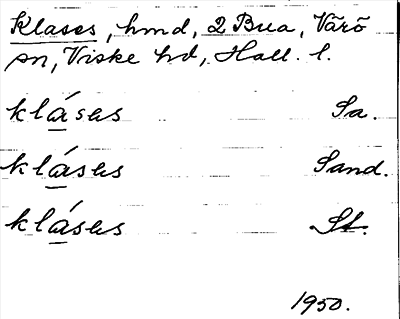 Klases, hmd, 2 Bua, Värö
sn, Viske hd, Hall. l.
kláses Sa.
kláses Sand.
kláses St.
1950.